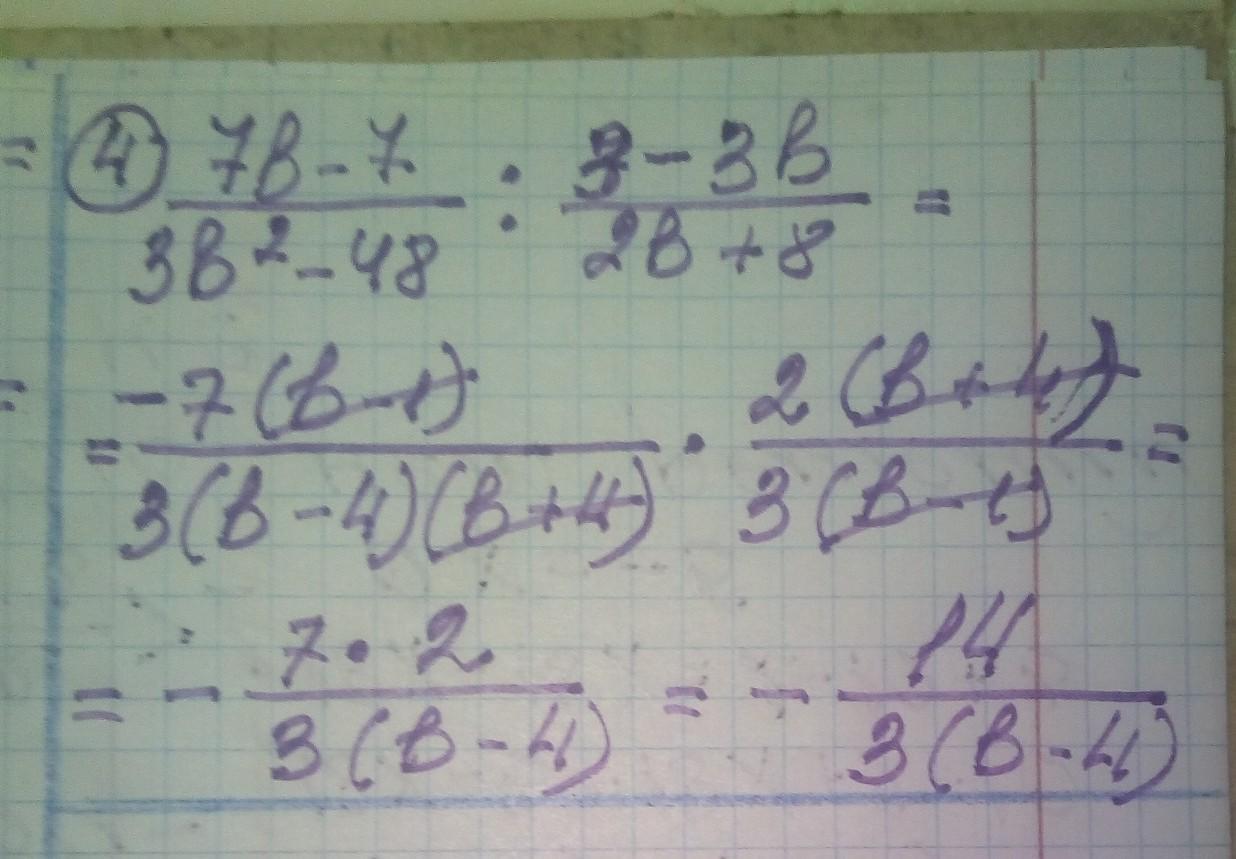 = ④ (7в - 7)/(3в² - 48) : (3 - 3в)/(2в + 8) =
= = (-7(в - 1))/(3(в - 4)(в + 4)) · (2(в + 4))/(3(в - 1)) =
= - (7 · 2)/(3(в - 4)) = - 14/(3(в - 4))